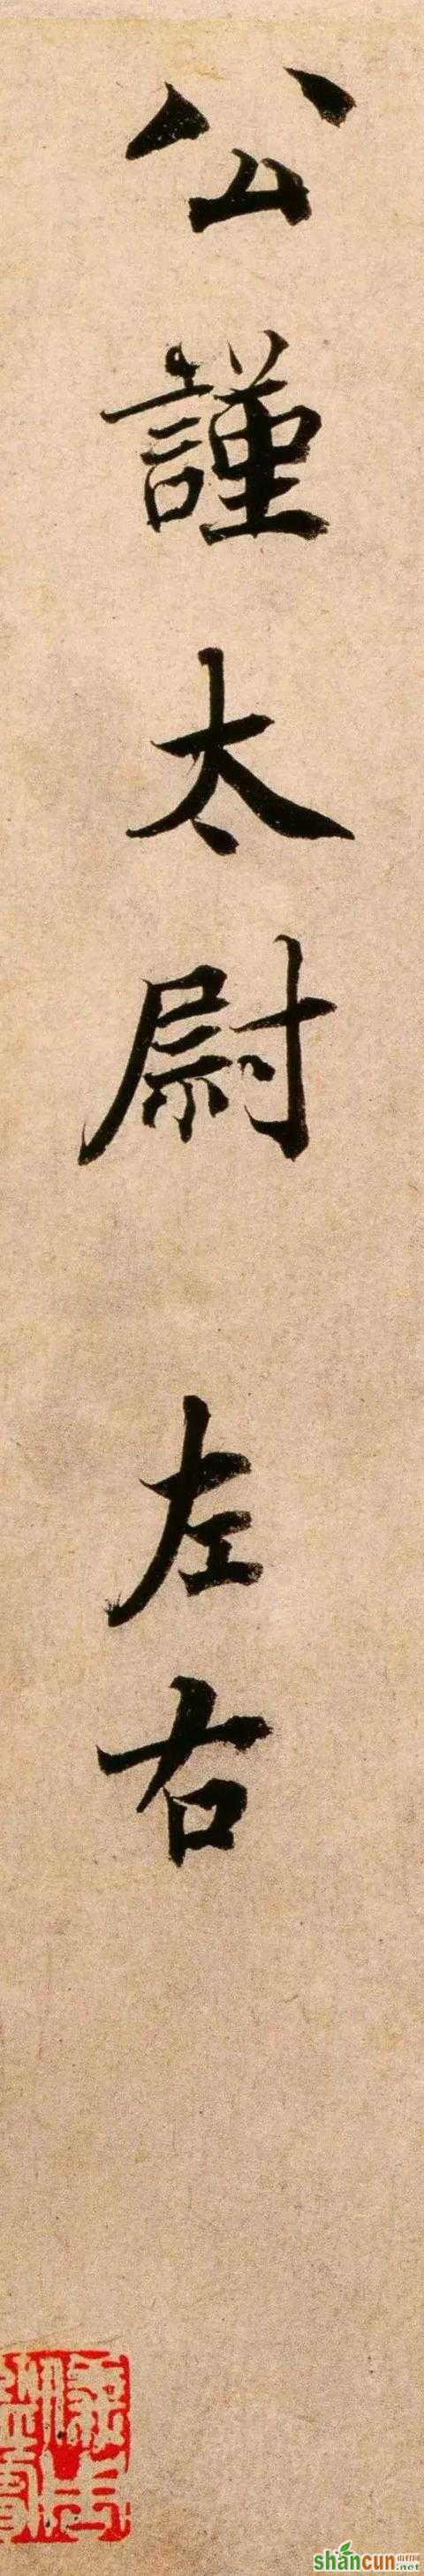 公謹太尉 左右
shancun
.net